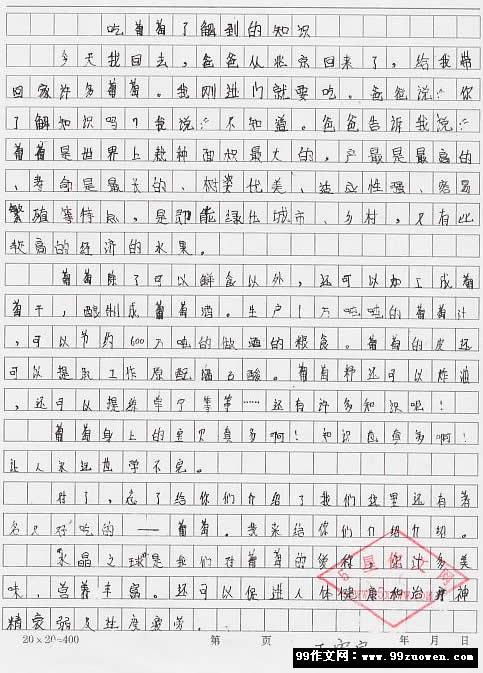 吃葡萄了解到的知识
今天我回去,爸爸从北京回来了,给我带
回家许多葡萄。我刚进门就要吃。爸爸说:“你
了解知识吗?我说:“不知道。爸爸告诉我说:“
葡萄是世界上栽种面积最大的,产量是最高的
、寿命是最长的、树姿优美、适应性强、容易
繁殖等特点,是即能绿化城市、乡村,又有比
较高的经济的水果。
葡萄除了可以鲜食以外,还可以加工成葡
萄干,酿制成葡萄酒。生产1万吨的葡萄汁
,可以节约600万吨的做酒的粮食。葡萄的皮还
可以提取工作原酒石酸。葡萄籽还可以炸油
,还可以提炼单宁等等……还有许多知识呢!
葡萄身上的宝贝真多啊!知识也真多啊!
让人永远也学不完。
对了,忘了给你们介绍了我们这里还有著
名又好吃的——葡萄。我来给你们介绍介绍。
“水晶之球”是我们对葡萄的美称,你汁多美
味,营养丰富。还可以促进人体健康和治疗神
精衰弱及过度疲劳。
20×20=400 第 页 年 月 日
99作文网:www.99zuowen.com